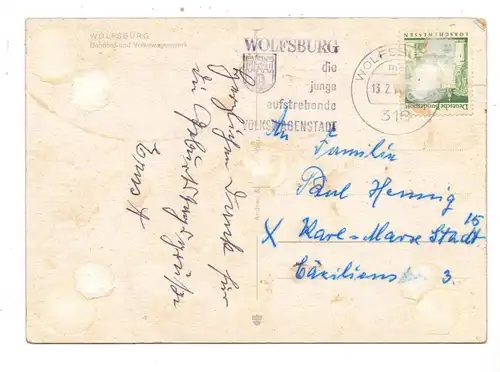 WOLFSBURG
Bahnhof und Volkswagenwerk
WOLFSBURG
die
junge
aufstrebende
VOLKSWAGENSTADT
WOLFSB
13.2.
318
LORSCH/HESSEN
Deutsche Bundespost
Herzlichen Dank für
die Geburtstagsgrüße
Ernst H
An
Familie
Paul Hennig
X Karl-Marx Stadt
15
Cäcilienstr. 3.